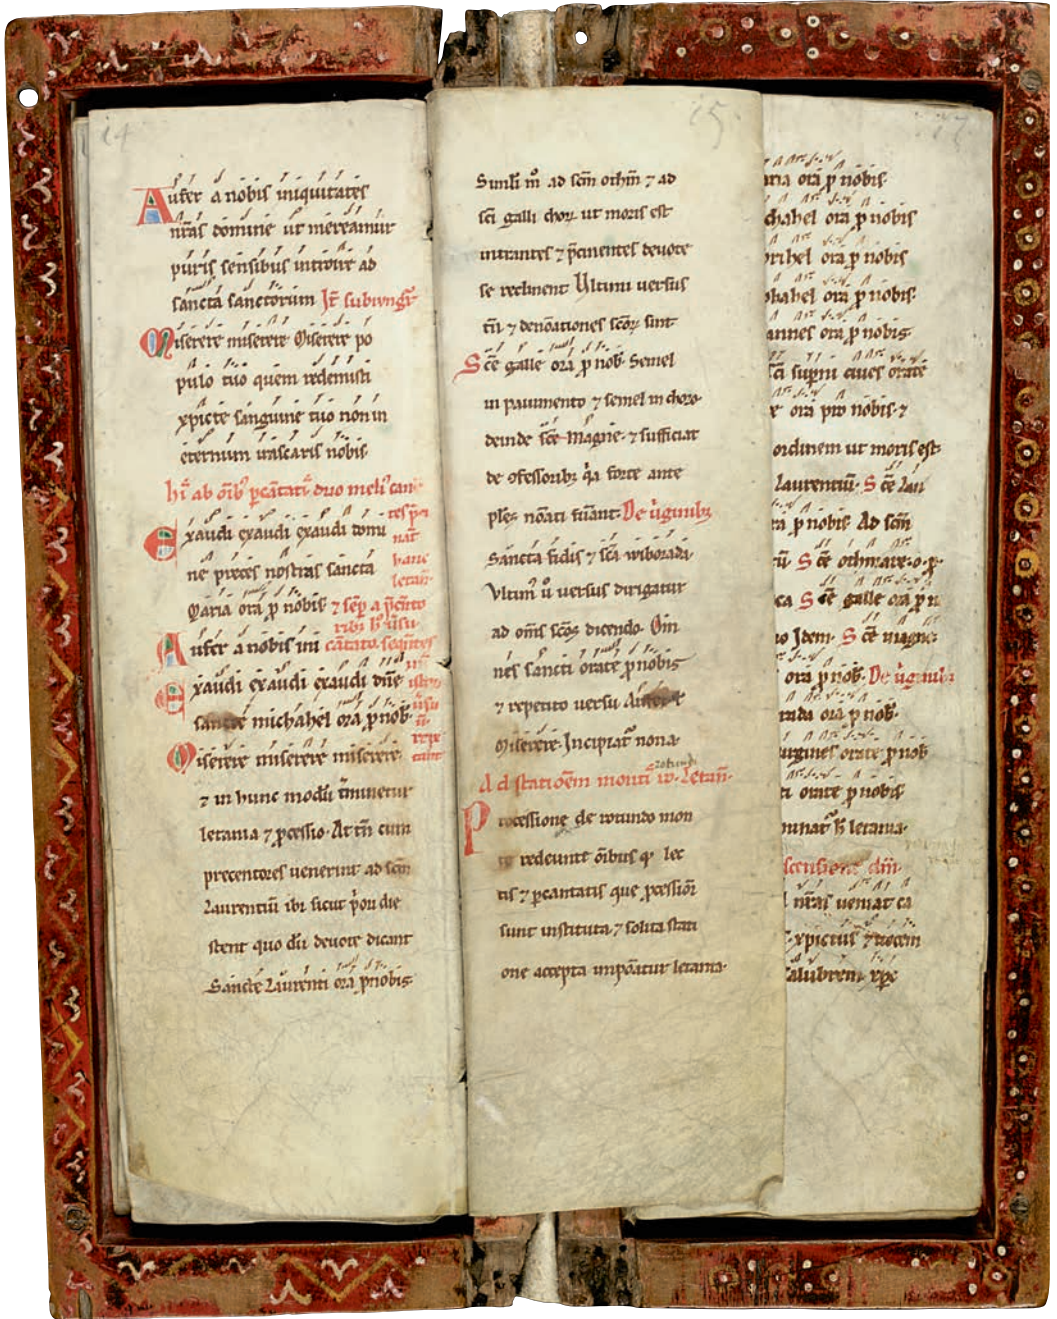 14
Aufer a nobis iniquitates
nr̄as domine ut mereamur
puris sensibus introire ad
sancta sanctorum It̄ subiungr̄
Miserere miserere Miserere po
pulo tuo quem redemisti
xpicte sanguine tuo non in
eternum irascaris nobis
hī ab oīb; p̄cātatī duo meli can
Exaudi exaudi exaudi domi
nat
ne preces nostras sancta
hanc
letan
Maria ora ꝓ nobis ⁊ sep̄ a
Aufer a nobis ini cātato seqn̄tes
Exaudi exaudi exaudi dn̄e
sancte michahel ora ꝓ nob
Miserere miserere miserere
⁊ in hunc modū t̄minetur
letania ⁊ ꝓcessio. At tn̄ cum
precentores uenerint ad scm̄
Laurentiū ibi sicut p̄ori die
stent quo dū deuote dicant
Sancte Laurenti ora ꝓ nobis
15
Simili m̊ ad scm̄ othm̄ ⁊ ad
sc̄i galli choꝝ ut moris est
intrantes ⁊ p̄cinentes deuote
se reclinent Ultimi uersus
tn̄ ⁊ denōationes scōꝝ sint
Sc̄e galle ora ꝓ nob. Semel
in pauimento ⁊ semel in choro
deinde sc̄e magne. ⁊ sufficiat
de ꝯfessorib; q̇a forte ante
ples nōati fuant. De ùginib;
Sancta fidis ⁊ scā wiborada
Vltim̄ ů uersus dirigatur
ad om̄s scōs dicendo. Om
nes sancti orate ꝓ nobis
⁊ repetito uersu Aufer
Miserere. Incipiat̄ nona.
rotundi
Ad statiōem montī Letan̄.
Processione de rotundo mon
te redeunte ōibus q; lec
tis ⁊ ꝑcantatis que ꝓcessioī
sunt instituta. ⁊ solita stati
one accepta impōatur letania.
17
aria ora ꝓ nobis.
chahel ora ꝓ nobis
brihel ora ꝓ nobis
phahel ora ꝓ nobis.
annes ora ꝓ nobis
sc̄i sup̄ni ciues orate
ora pro nobis. ⁊
ordinem ut moris est.
laurentiū. Sc̄e lau
ra ꝓ nobis Ad scm̄
Sc̄e othmare. o. ꝓ.
ca Sc̄e galle ora ꝓ n.
Idem. Sc̄e magne.
ora ꝓ nob. De ùginib;
rada ora ꝓ nob.
uirgines orate ꝓ nob
ti orate ꝓ nobis
minat̄ h̄ letania.
scensione dn̄i.
nr̄as ueniat ca
xpictus ⁊ uocem
salubrem. rex